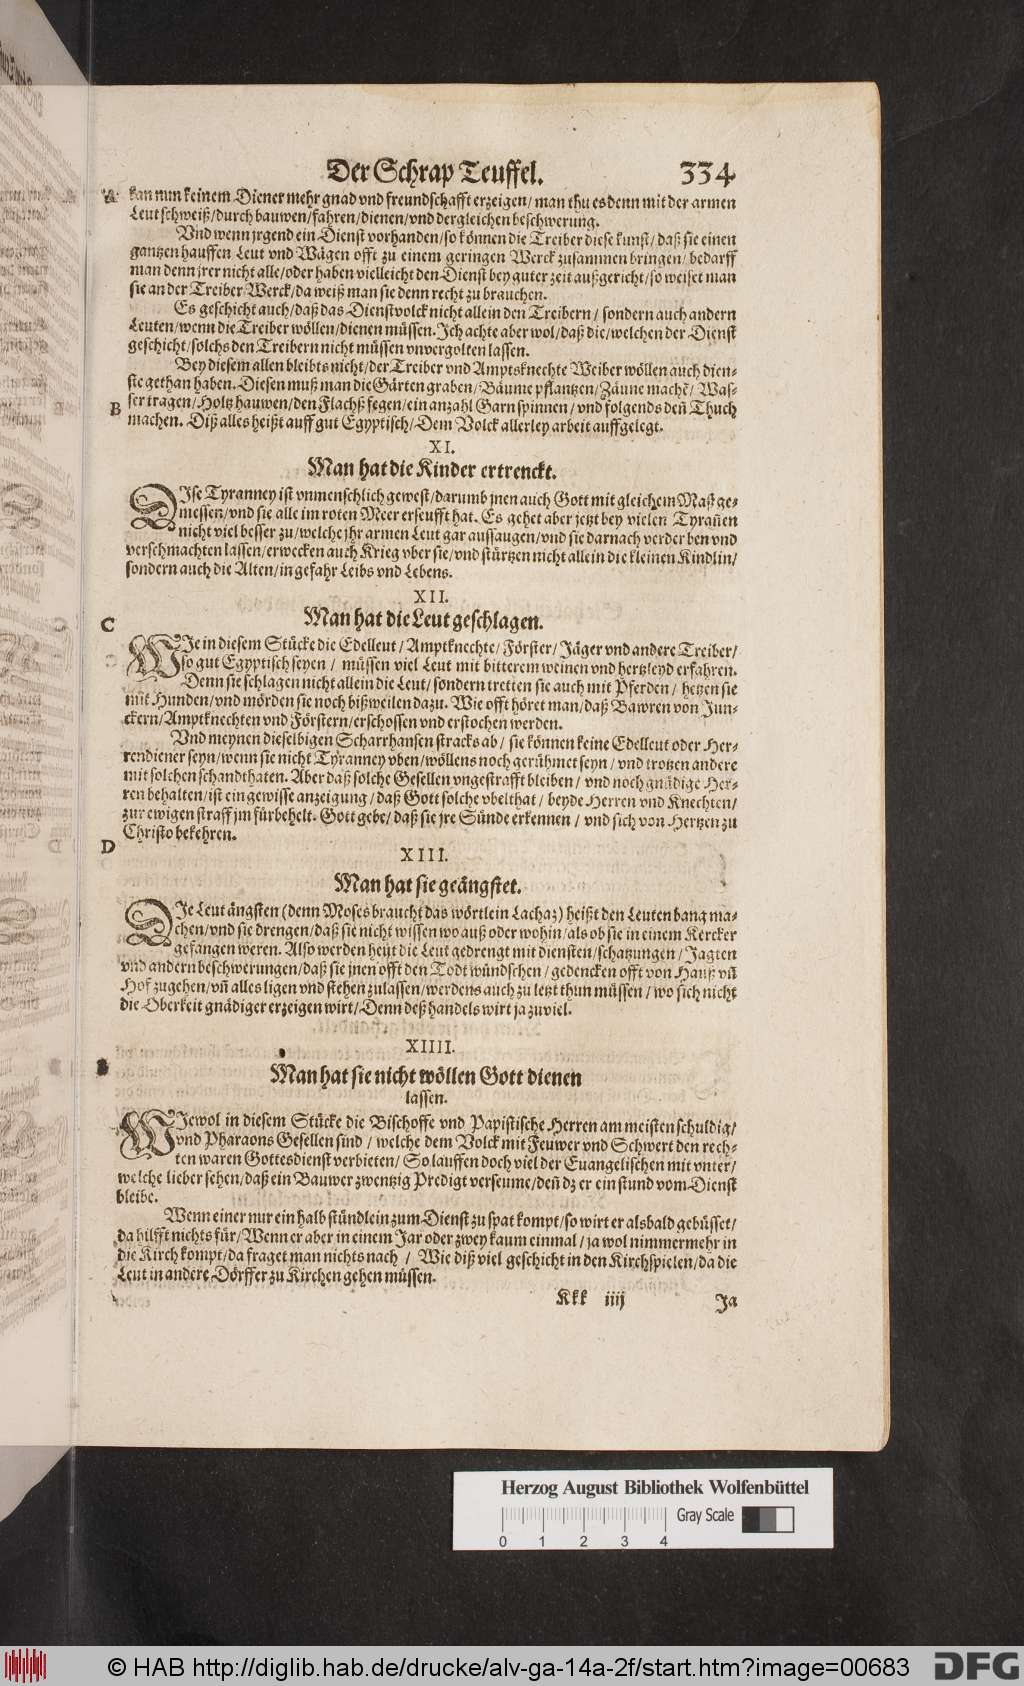 Der Schrap Teuffel. 334
A kan nun keinem Diener mehr gnad vnd freundschafft erzeigen/ man thu es denn mit der armen
Leut schweiß/durch bauwen/fahren/dienen/vnd dergleichen beschwerung.
Vnd wenn jrgend ein Dienst vorhanden/so können die Treiber diese kunst/ daß sie einen
gantzen hauffen Leut vnd Wägen offt zu einem geringen Werck zusammen bringen/ bedarff
man denn jrer nicht alle/oder haben vielleicht den Dienst bey guter zeit außgericht/so weiset man
sie an der Treiber Werck/da weiß man sie denn recht zu brauchen.
Es geschicht auch/daß das Dienstvolck nicht allein den Treibern/ sondern auch andern
Leuten/wenn die Treiber wöllen/dienen müssen. Ich achte aber wol/daß die/welchen der Dienst
geschicht/solchs den Treibern nicht müssen vnvergolten lassen.
Bey diesem allen bleibts nicht/der Treiber vnd Amptsknechte Weiber wöllen auch dien-
ste gethan haben. Diesen muß man die Gärten graben/ Bäume pflantzen/ Zäune machē/ Was-
B ser tragen/Holtz hauwen/den Flachß fegen/ein anzahl Garn spinnen/ vnd folgends deñ Thuch
machen. Diß alles heißt auff gut Egyptisch/ Dem Volck allerley arbeit auffgelegt.
XI.
Man hat die Kinder ertrenckt.
DIse Tyranney ist vnmenschlich gewest/darumb jnen auch Gott mit gleichem Maß ge-
messen/vnd sie alle im roten Meer erseufft hat. Es gehet aber jetzt bey vielen Tyrañen
nicht viel besser zu/welche jhr armen Leut gar aussaugen/vnd sie darnach verderben vnd
verschmachten lassen/erwecken auch Krieg vber sie/vnd stürtzen nicht allein die kleinen Kindlin/
sondern auch die Alten/in gefahr Leibs vnd Lebens.
XII.
C Man hat die Leut geschlagen.
WIe in diesem Stücke die Edelleut/ Amptknechte/ Förster/ Jäger vnd andere Treiber/
so gut Egyptisch seyen/ müssen viel Leut mit bitterem weinen vnd hertzleyd erfahren.
Denn sie schlagen nicht allein die Leut/ sondern tretten sie auch mit Pferden/ hetzen sie
mit Hunden/vnd mörden sie noch bißweilen dazu. Wie offt höret man/daß Bawren von Jun-
ckern/Amptknechten vnd Förstern/erschossen vnd erstochen werden.
Vnd meynen dieselbigen Scharrhansen stracks ab/ sie können keine Edelleut oder Her-
rendiener seyn/wenn sie nicht Tyranney vben/wöllens noch gerühmet seyn/ vnd trotzen andere
mit solchen schandthaten. Aber daß solche Gesellen vngestrafft bleiben/ vnd noch gnädige Her-
ren behalten/ist ein gewisse anzeigung/daß Gott solche vbelthat/ beyde Herren vnd Knechten/
zur ewigen straff jm fürbehelt. Gott gebe/ daß sie jre Sünde erkennen/ vnd sich von Hertzen zu
D Christo bekehren.
XIII.
Man hat sie geängstet.
DIe Leut ängsten (denn Moses braucht das wörtlein Lachaz) heißt den Leuten bang ma-
chen/vnd sie drengen/daß sie nicht wissen wo auß oder wohin/als ob sie in einem Kercker
gefangen weren. Also werden heut die Leut gedrengt mit diensten/schatzungen/ Jagten
vnd andern beschwerungen/daß sie jnen offt den Todt wündschen/ gedencken offt von Hauß vñ
Hof zugehen/vñ alles ligen vnd stehen zulassen/werdens auch zu letzt thun müssen/ wo sich nicht
die Oberkeit gnädiger erzeigen wirt/Denn deß handels wirt ja zuviel.
XIIII.
Man hat sie nicht wöllen Gott dienen
lassen.
WIewol in diesem Stücke die Bischoffe vnd Papistische Herren am meisten schuldig/
vnd Pharaons Gesellen sind/ welche dem Volck mit Feuwer vnd Schwert den rech-
ten waren Gottesdienst verbieten/ So lauffen doch viel der Euangelischen mit vnter/
welche lieber sehen/daß ein Bauwer zwentzig Predigt verseume/deñ dz er ein stund vom Dienst
bleibe.
Wenn einer nur ein halb stündlein zum Dienst zu spat kompt/so wirt er alsbald gebüsset/
da hilfft nichts für/Wenn er aber in einem Jar oder zwey kaum einmal/ ja wol nimmermehr in
die Kirch kompt/da fraget man nichts nach/ Wie diß viel geschicht in den Kirchspielen/da die
Leut in andere Dörffer zu Kirchen gehen müssen.
Kkk iiij Ja
Herzog August Bibliothek Wolfenbüttel
Gray Scale
0 1 2 3 4
© HAB http://diglib.hab.de/drucke/alv-ga-14a-2f/start.htm?image=00683 DFG